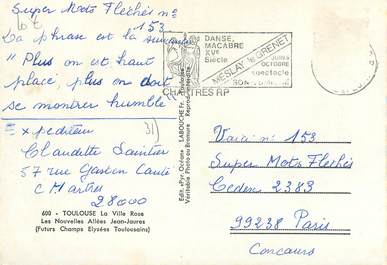 Super Mots Flechés nº
153
La phrase est la suivante
" Plus on est haut
placé, plus on doit
se montrer humble "
Expéditeur
Claudette
57 rue Gaston Couté
Chartres
28000
600 - TOULOUSE La Ville Rose
Les Nouvelles Allées Jean-Jaures
(Futurs Champs Elysées Toulousains)
Edit. «Pyr.-Océan» LABOUCHE Fr. Toulouse
Véritable Photo au Bromure Reproduction
DANSE
MACABRE
XVe
Siècle
MESLAY le GRENET
JUIN
OCTOBRE
spectacle
SON
CHARTRES RP
31)
nº 153
Super Mots Flechés
Cedex 2383
99238 Paris
Concours